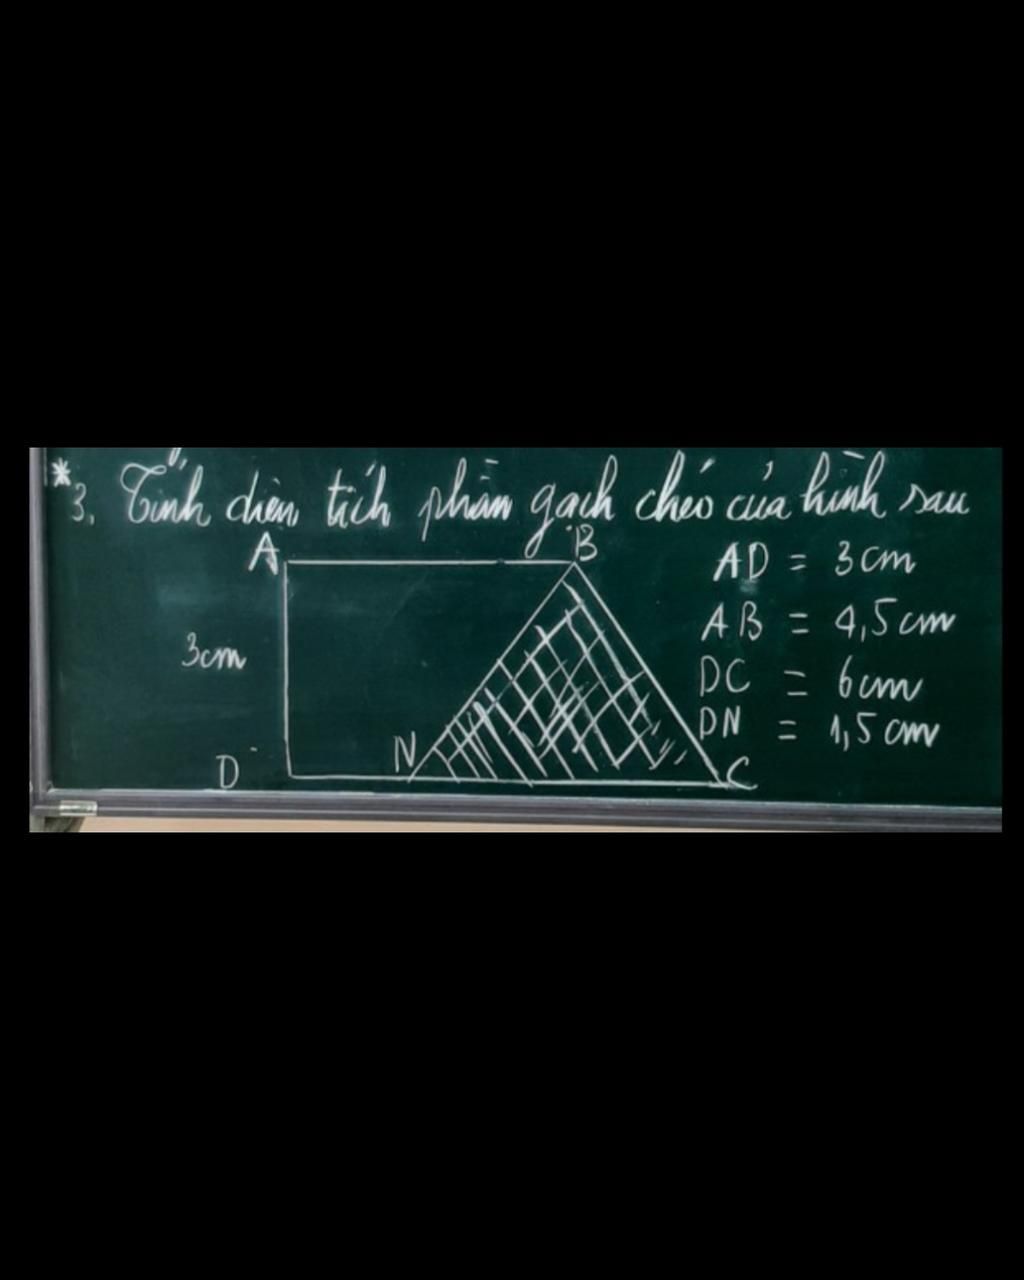 *3. Tính diện tích phần gạch chéo của hình sau
A B
AD = 3cm
AB = 4,5cm
3cm
DC = 6cm
DN = 1,5cm
D N C